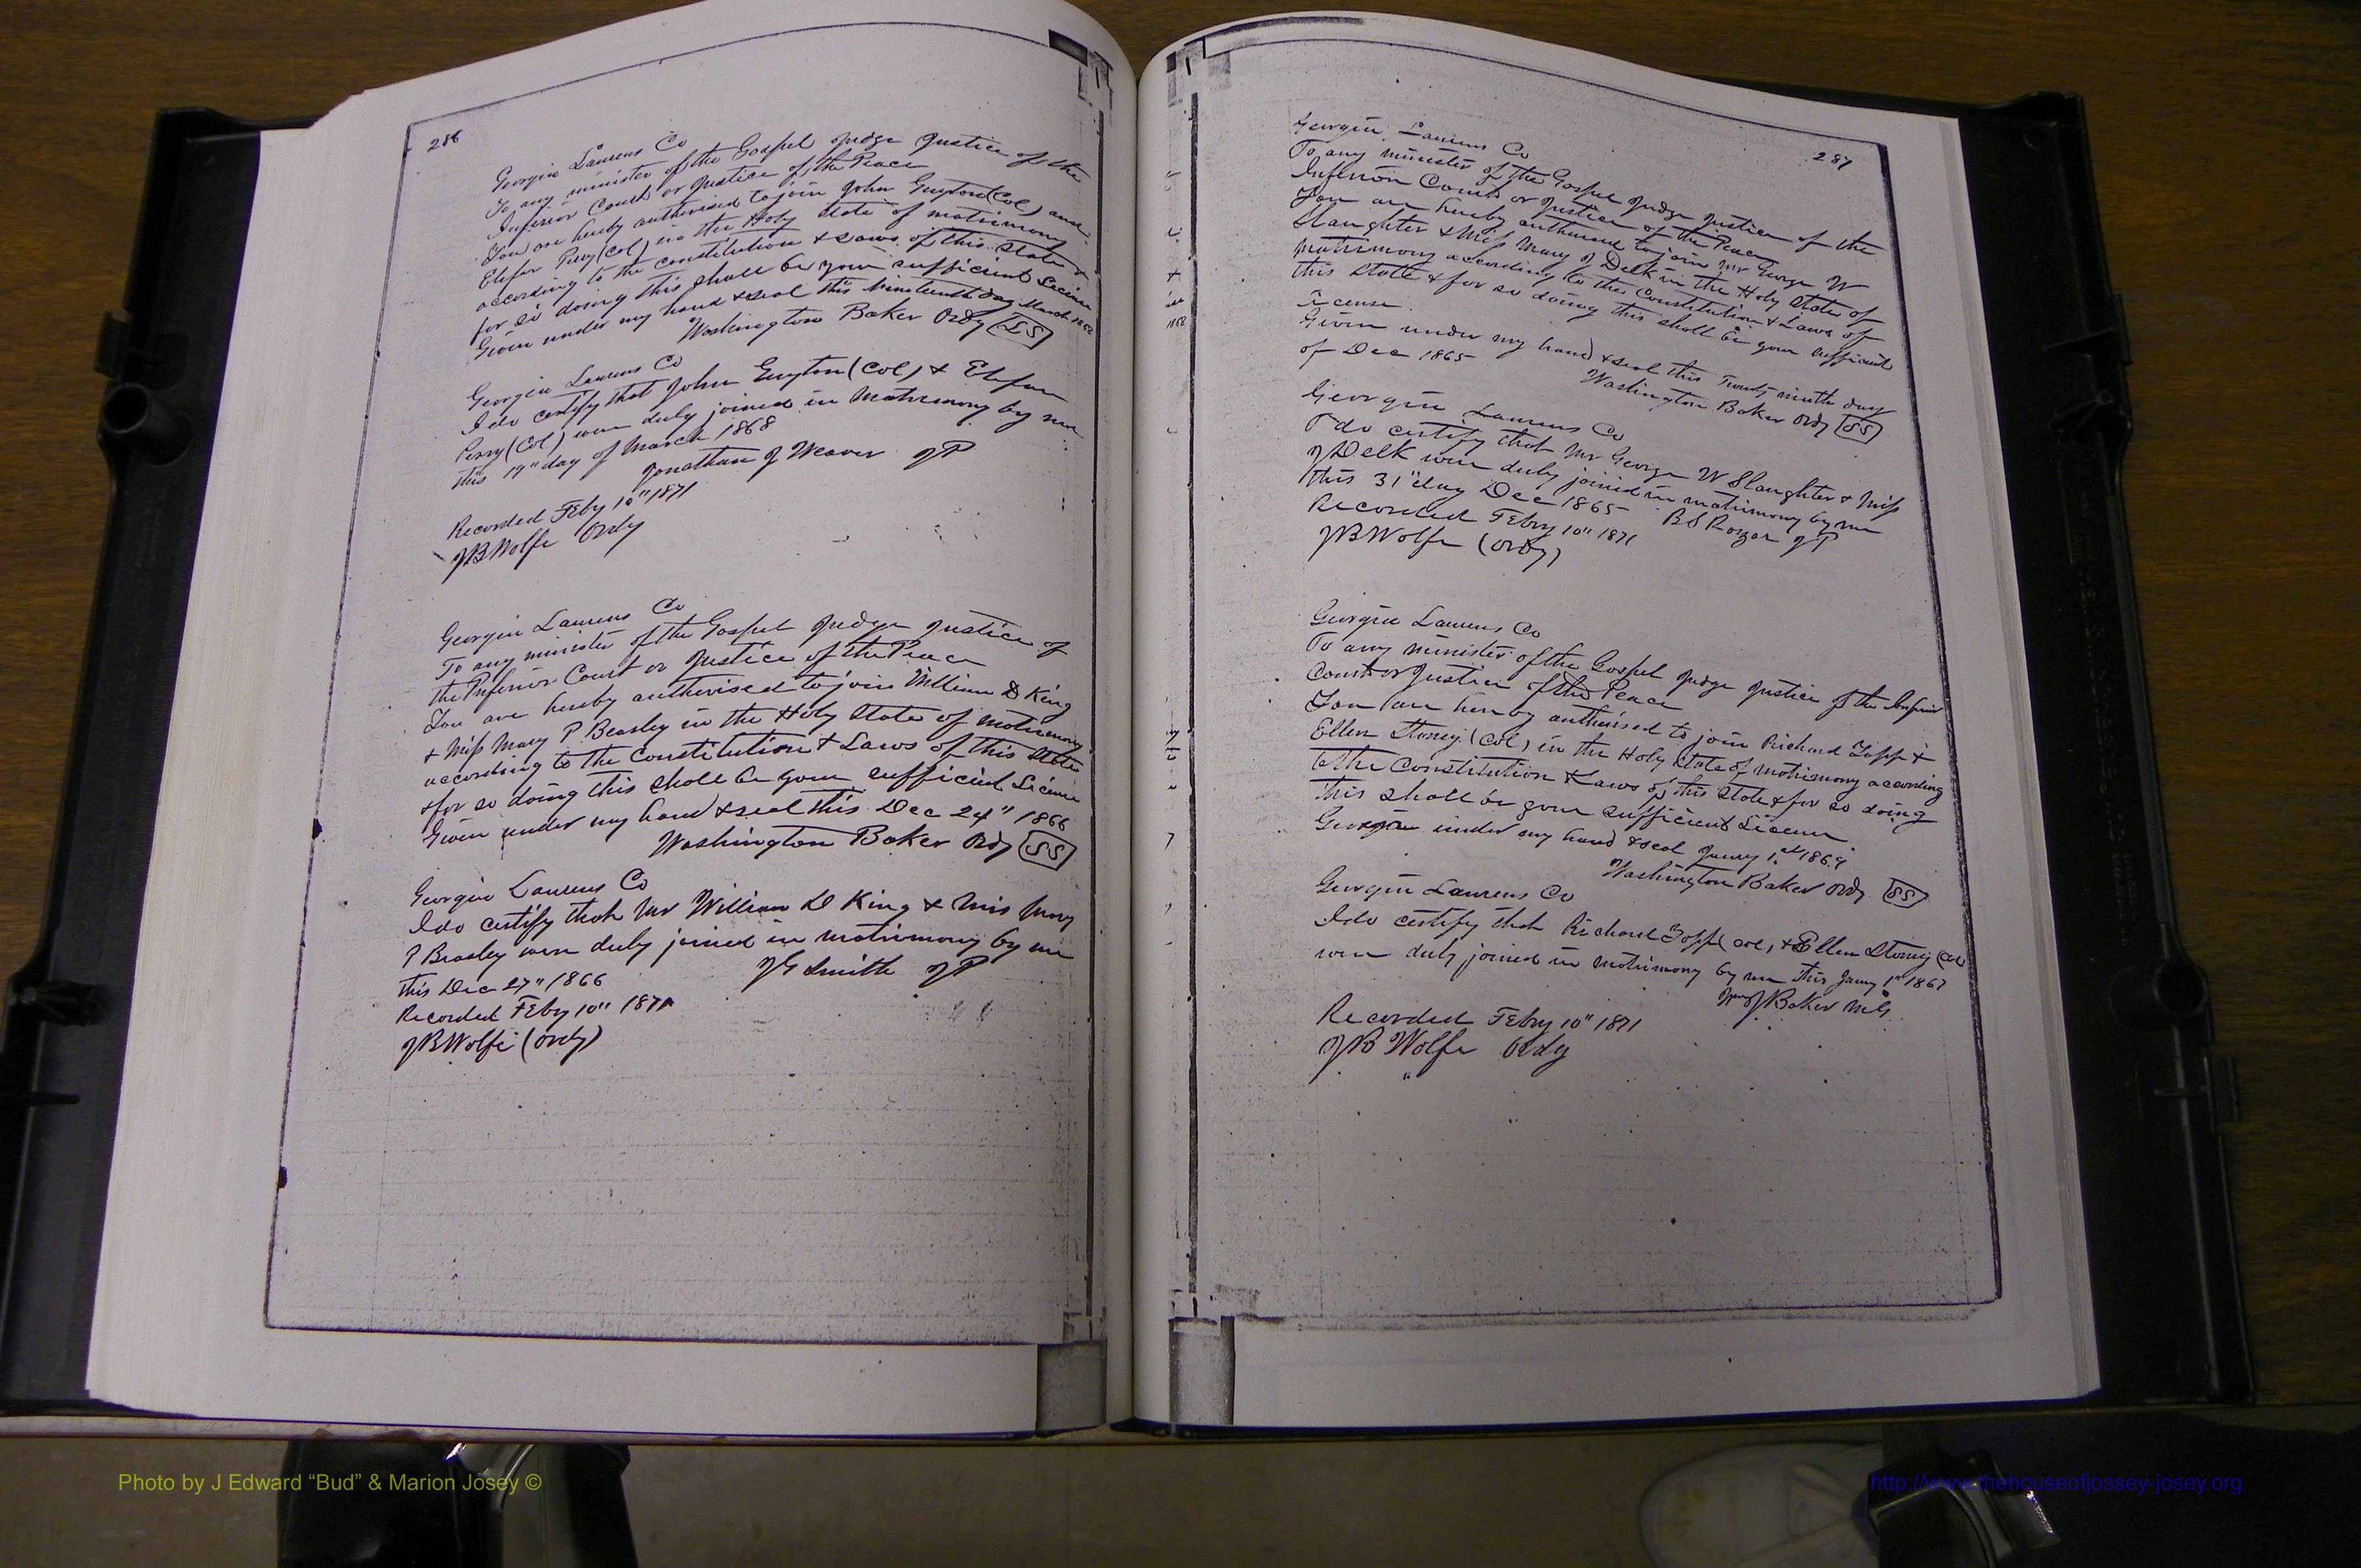 286
Georgia Laurens Co
To any minister of the Gospel Judge Justice of the
Inferior Court or Justice of the Peace
You are hereby authorised to join John Guyton (Col) and
Perry (Col) in the Holy State of matrimony
according to the constitution & Laws of this State &
for so doing this shall be your sufficient License
Given under my hand & seal this Nineteenth day March 1868
Washington Baker Ordy (LS)
Georgia Laurens Co
I do certify that John Guyton (Col) &
Perry (Col) were duly joined in Matrimony by me
this 19" day of March 1868
Jonathan J Weaver JP
Recorded Feby 10" 1871
JB Wolfe Ordy
Georgia Laurens Co
To any minister of the Gospel Judge Justice of
the Inferior Court or Justice of the Peace
You are hereby authorised to join William D King
& Miss Mary P Beasley in the Holy State of matrimony
according to the Constitution & Laws of this State
& for so doing this shall be your sufficient License
Given under my hand & seal this Dec 24" 1866
Washington Baker Ordy (LS)
Georgia Laurens Co
I do certify that Mr William D King & Miss Mary
P Beasley were duly joined in matrimony by me
this Dec 27" 1866
JG Smith JP
Recorded Feby 10" 1871
JB Wolfe (Ordy)
287
Georgia Laurens Co
To any minister of the Gospel Judge Justice of the
Inferior Court or Justice of the Peace
You are hereby authorised to join Mr George W
Slaughter & Miss Mary J Delk in the Holy State of
matrimony according to the Constitution & Laws of
this State & for so doing this shall be your sufficient
License
Given under my hand & seal this Twenty ninth day
of Dec 1865
Washington Baker Ordy (LS)
Georgia Laurens Co
I do certify that Mr George W Slaughter & Miss
J Delk were duly joined in matrimony by me
this 31" day Dec 1865
BS Rozar JP
Recorded Febry 10" 1871
JB Wolfe (Ordy)
Georgia Laurens Co
To any minister of the Gospel Judge Justice of the Inferior
Court or Justice of the Peace
You are hereby authorised to join Richard &
Ellen Stoney (Col) in the Holy State of Matrimony according
to the Constitution & Laws of this State & for so doing
this shall be your sufficient License
under my hand & seal Jany 1st
Washington Baker Ordy (LS)
Georgia Laurens Co
I do certify that Richard (Col) & Ellen Stoney (Col
were duly joined in Matrimony by me this Jany 1st 1867
Baker MG
Recorded Febry 10" 1871
JB Wolfe Ordy
Photo by J Edward “Bud” & Marion Josey ©
http://www.thehouseofjossey-josey.org